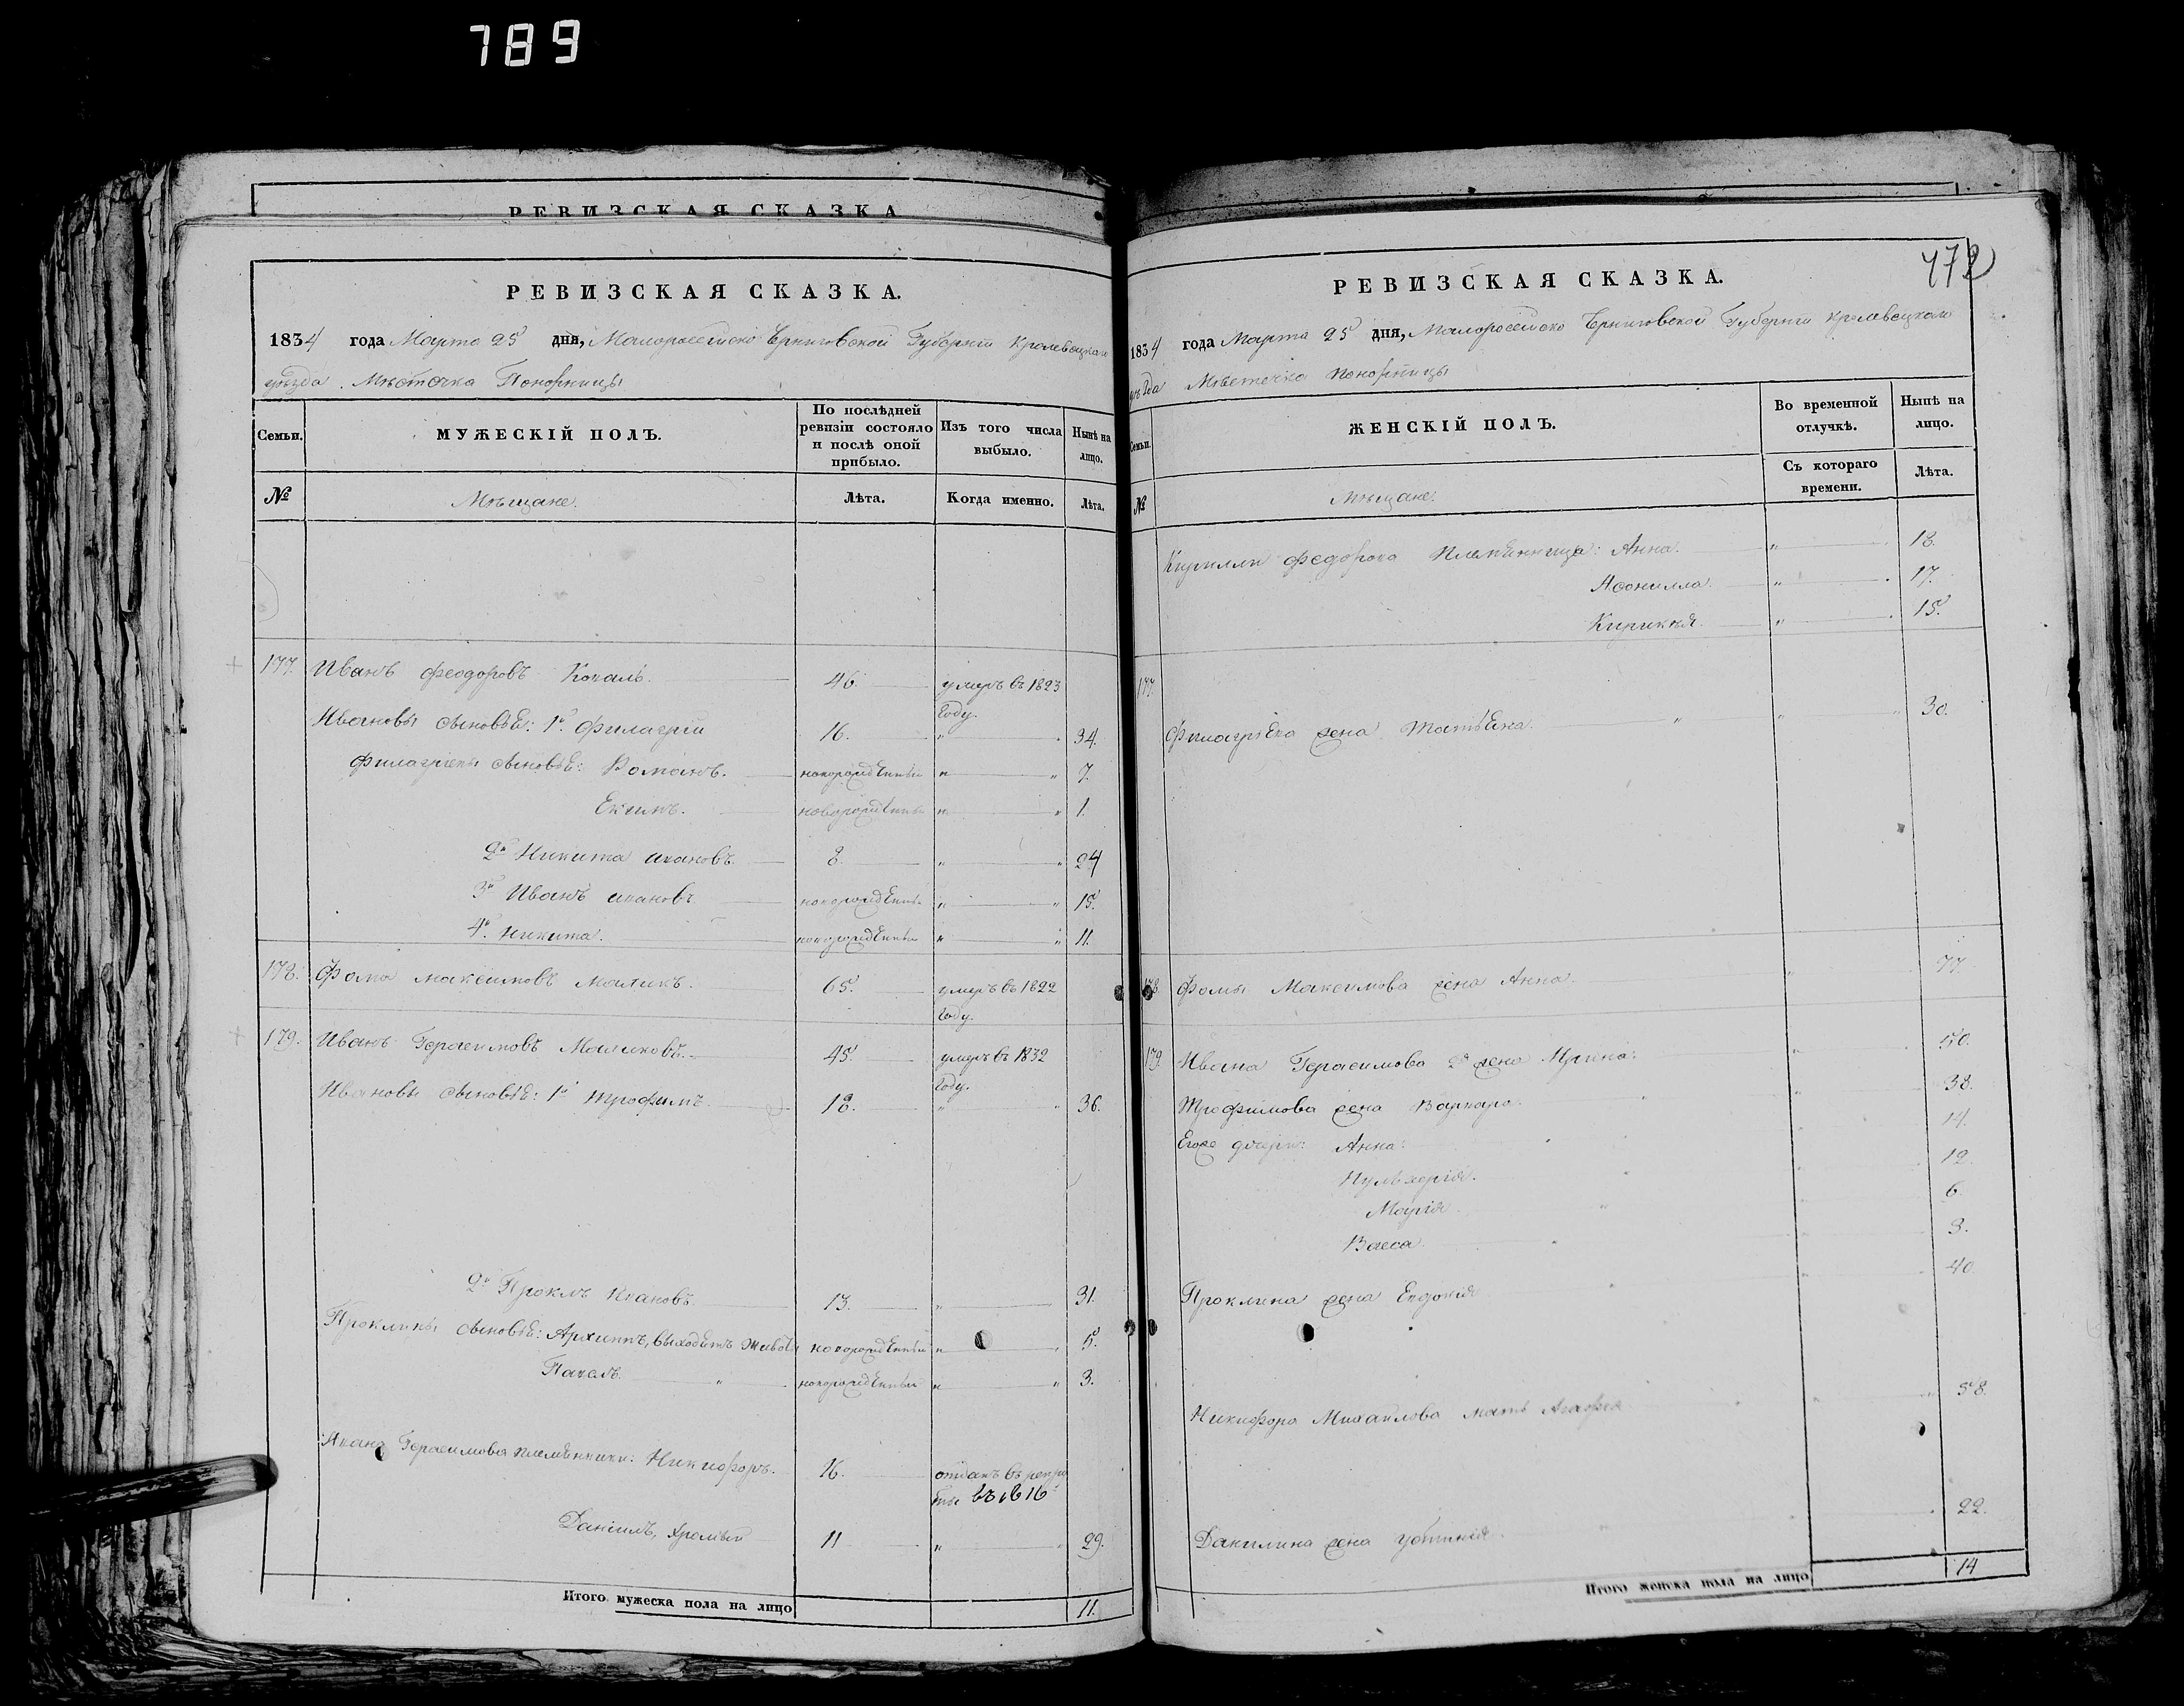 789
РЕВИЗСКАЯ СКАЗКА
РЕВИЗСКАЯ СКАЗКА.
1834 года Марта 25 дня, Малороссійско Черниговской Губерніи Кролевецкаго
уѣзда Мѣстечка Понорницы
Семьи.
МУЖЕСКІЙ ПОЛЪ.
По послѣдней ревизіи состояло и послѣ оной прибыло.
Изъ того числа выбыло.
Нынѣ на лицо.
№
Мѣщане.
Лѣта.
Когда именно.
Лѣта.
177. Иванъ Феодоровъ 46. умеръ въ 1823 году.
Ивановы сыновьЕ: 1й Филагрій 16. " " 34.
Филагріевы сыновьЕ: Романъ. новорождЕнный " " 7.
Екимъ. новорождЕнный " " 1.
2й Никита Ивановъ 8. " " 24
3й Иванъ Ивановъ новорождЕнный " " 15.
4й Никита. новорождЕнный " " 11.
178. Фома Максимовъ Маликъ. 65. умеръ въ 1822 году.
179. Иванъ Герасимовъ Маликовъ. 45. умеръ въ 1832 году.
Ивановы сыновьЕ: 1й Трофимъ. 18. " " 36.
2й Проклъ Ивановъ. 13. " 31.
Проклины сыновьЕ: Архиппъ, новорождЕнный " " 5.
Павелъ. " новорождЕнный " " 3.
Ивана Герасимова племЕнники: Никифоръ. 16. отданъ въ рекруты въ 1816
Даніилъ, хромый 11 " " 29.
Итого мужеска пола на лицо 11.
472
РЕВИЗСКАЯ СКАЗКА.
1834 года Марта 25 дня, Малороссійско Черниговской Губерніи Кролевецкаго
уѣзда Мѣстечка Понорницы
Семьи.
ЖЕНСКІЙ ПОЛЪ.
Во временной отлучкѣ.
Нынѣ на лицо.
№
Мѣщане.
Съ котораго времени.
Лѣта.
Кирилы Федорова племЕнницы: Анна. " 18.
Асонилла. " 17.
Кирикія. " 15.
177.
Филагріева жена Татьяна. " " " 30.
178. Фомы Максимова жена Анна. " 77.
179. Ивана Герасимова 2я жена Ирина. " 50.
Трофимова жена Варвара. " 38.
Егоже дочери: Анна: 14.
Пульхерія. 12.
Марія. 6.
Васса. 3.
Проклина жена Евдокія 40
Никифора Михайлова мать Агафія 58.
Данилина жена Устинія. 22.
Итого женска пола на лицо 14